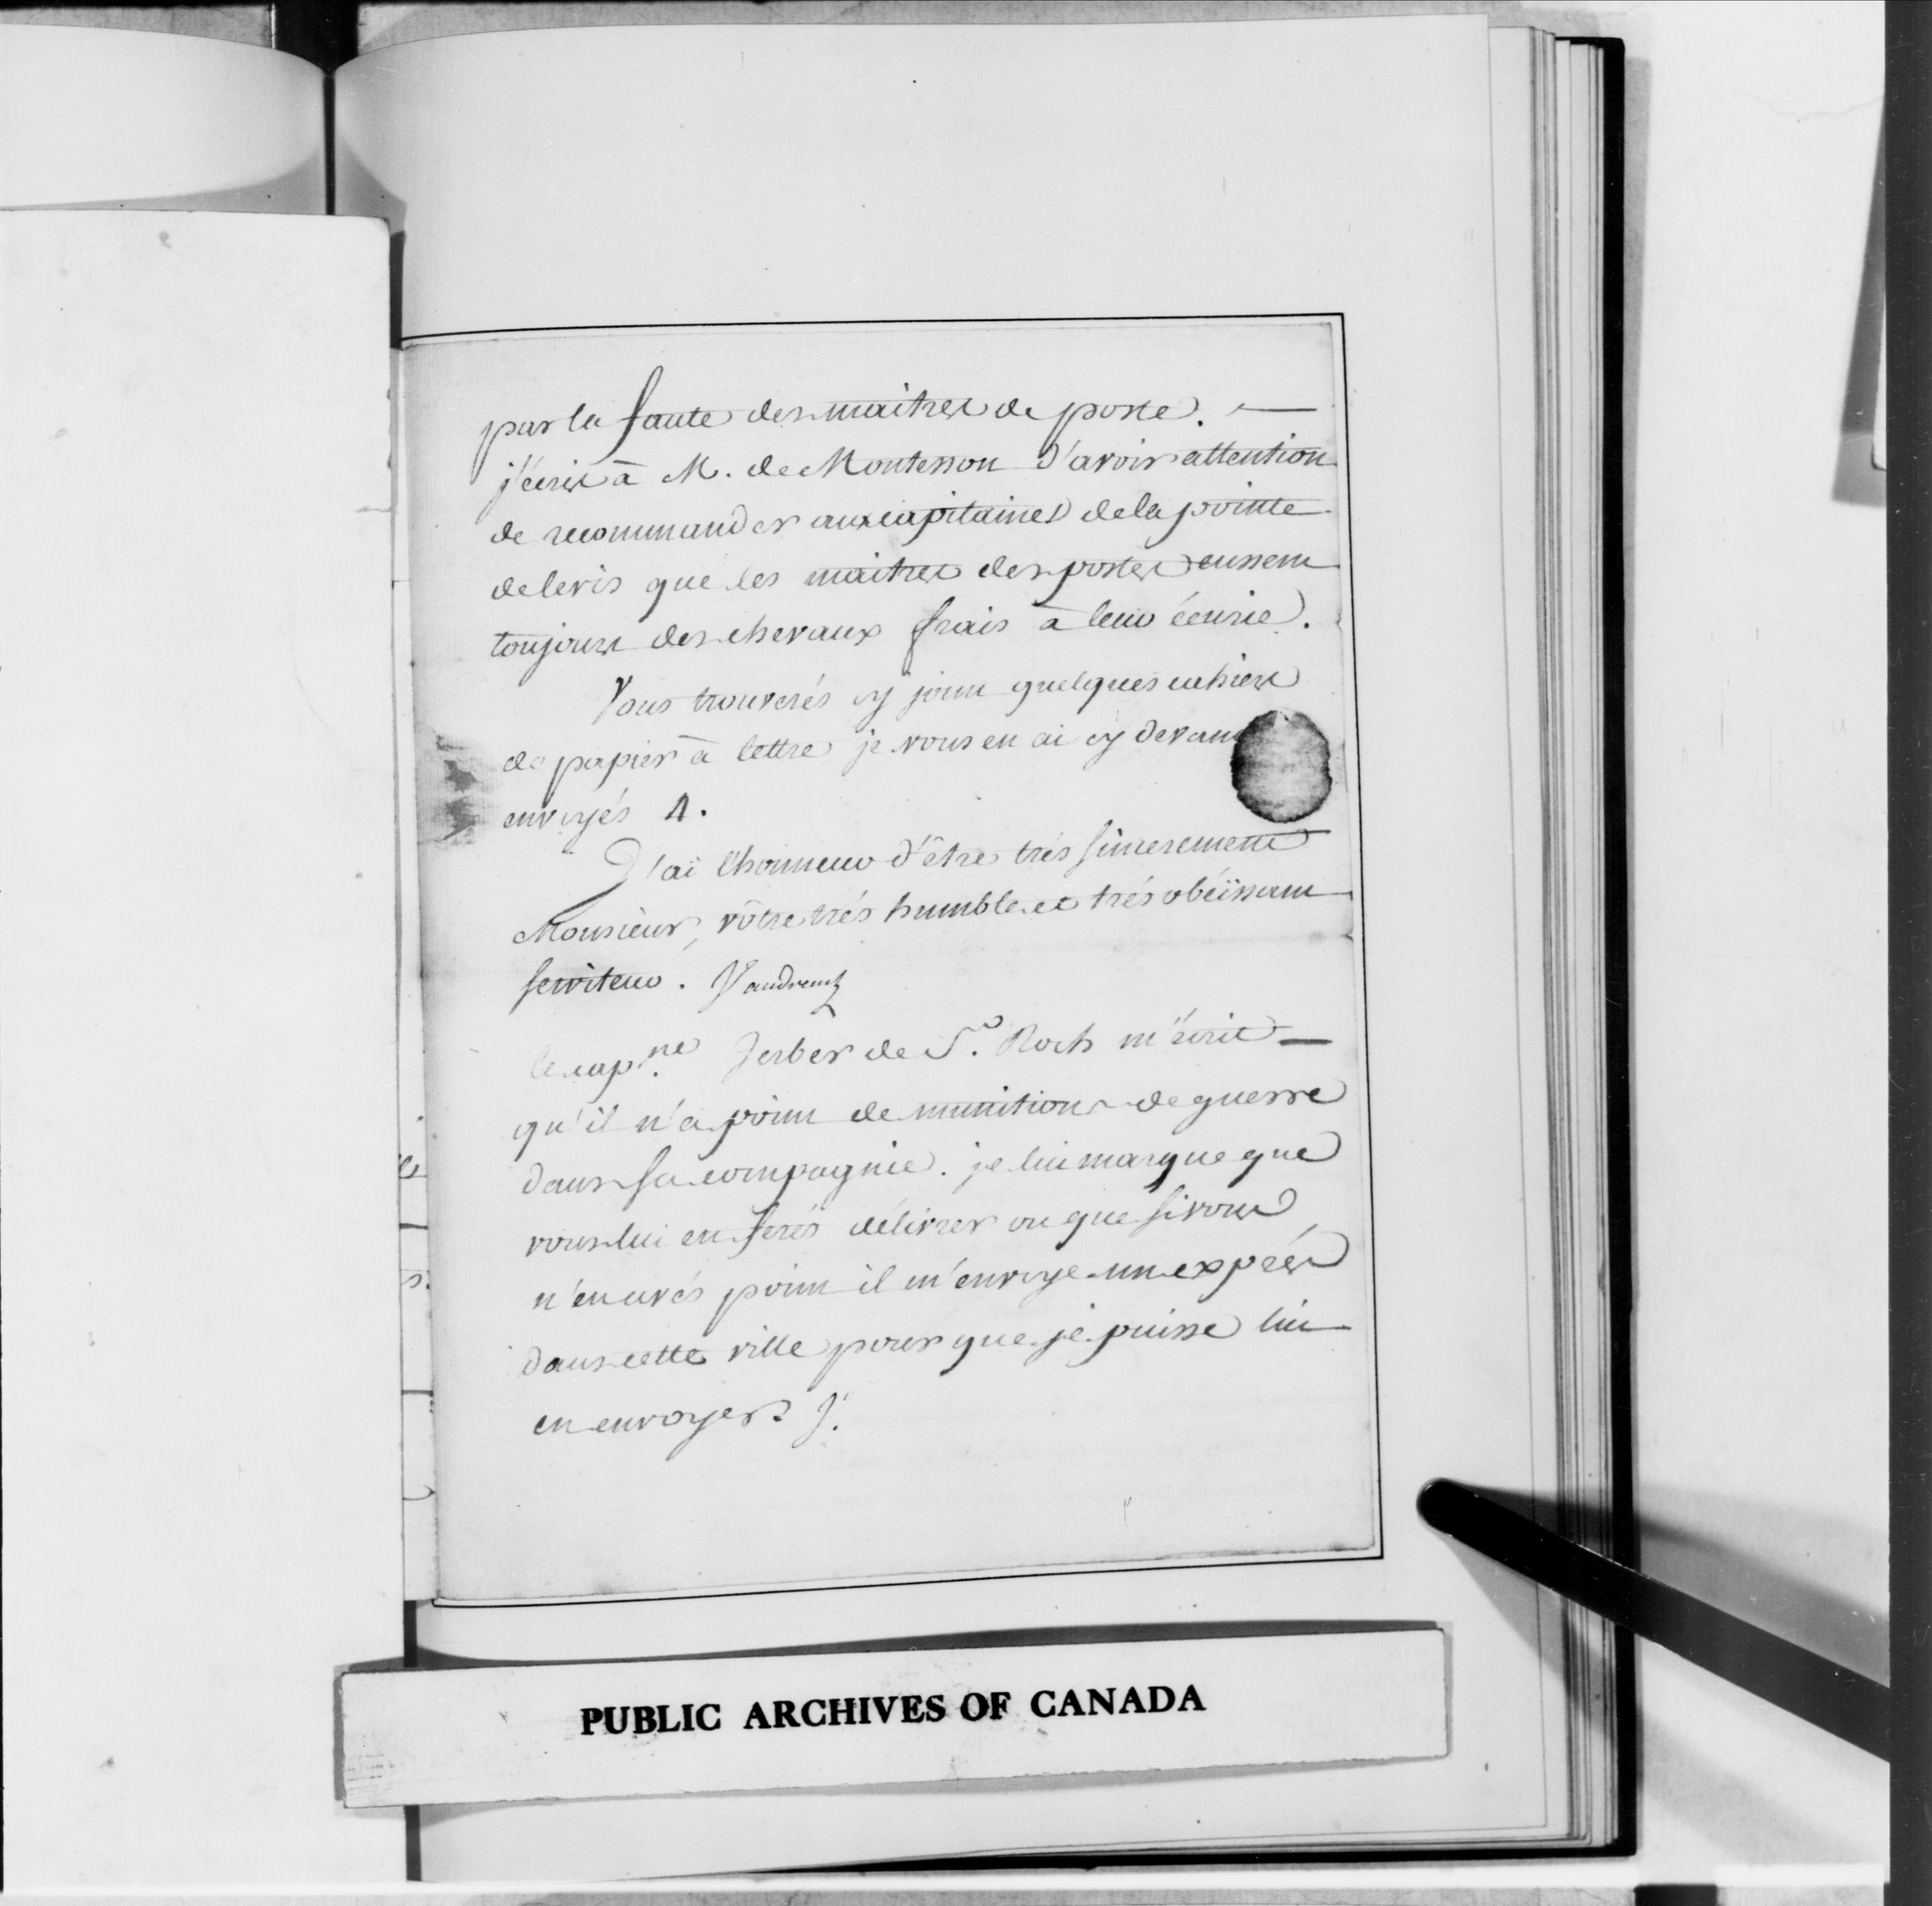 par la faute des maitres de poste. —
j'écris à M. de Montesson d'avoir attention
de recommander aux capitaines de la pointe
de levis que les maitres des postes eussent
toujours des chevaux frais à leur écurie.
Vous trouverés cy joint quelques cahiers
de papier à lettre je vous en ai cy devant
envoyés 4.
J'ai l'honneur d'être trés sincerement
Monsieur, vôtre trés humble et trés obéissant
serviteur. Vaudreuil
le cap.ne Jerber de S.t Roch m'écrit —
qu'il n'a point de munitions de guerre
dans sa compagnie. je lui marque que
vous lui en ferés délivrer ou que si vous
n'en avés point il m'envoye un exprés
dans cette ville pour que je puisse lui
en envoyer
PUBLIC ARCHIVES OF CANADA